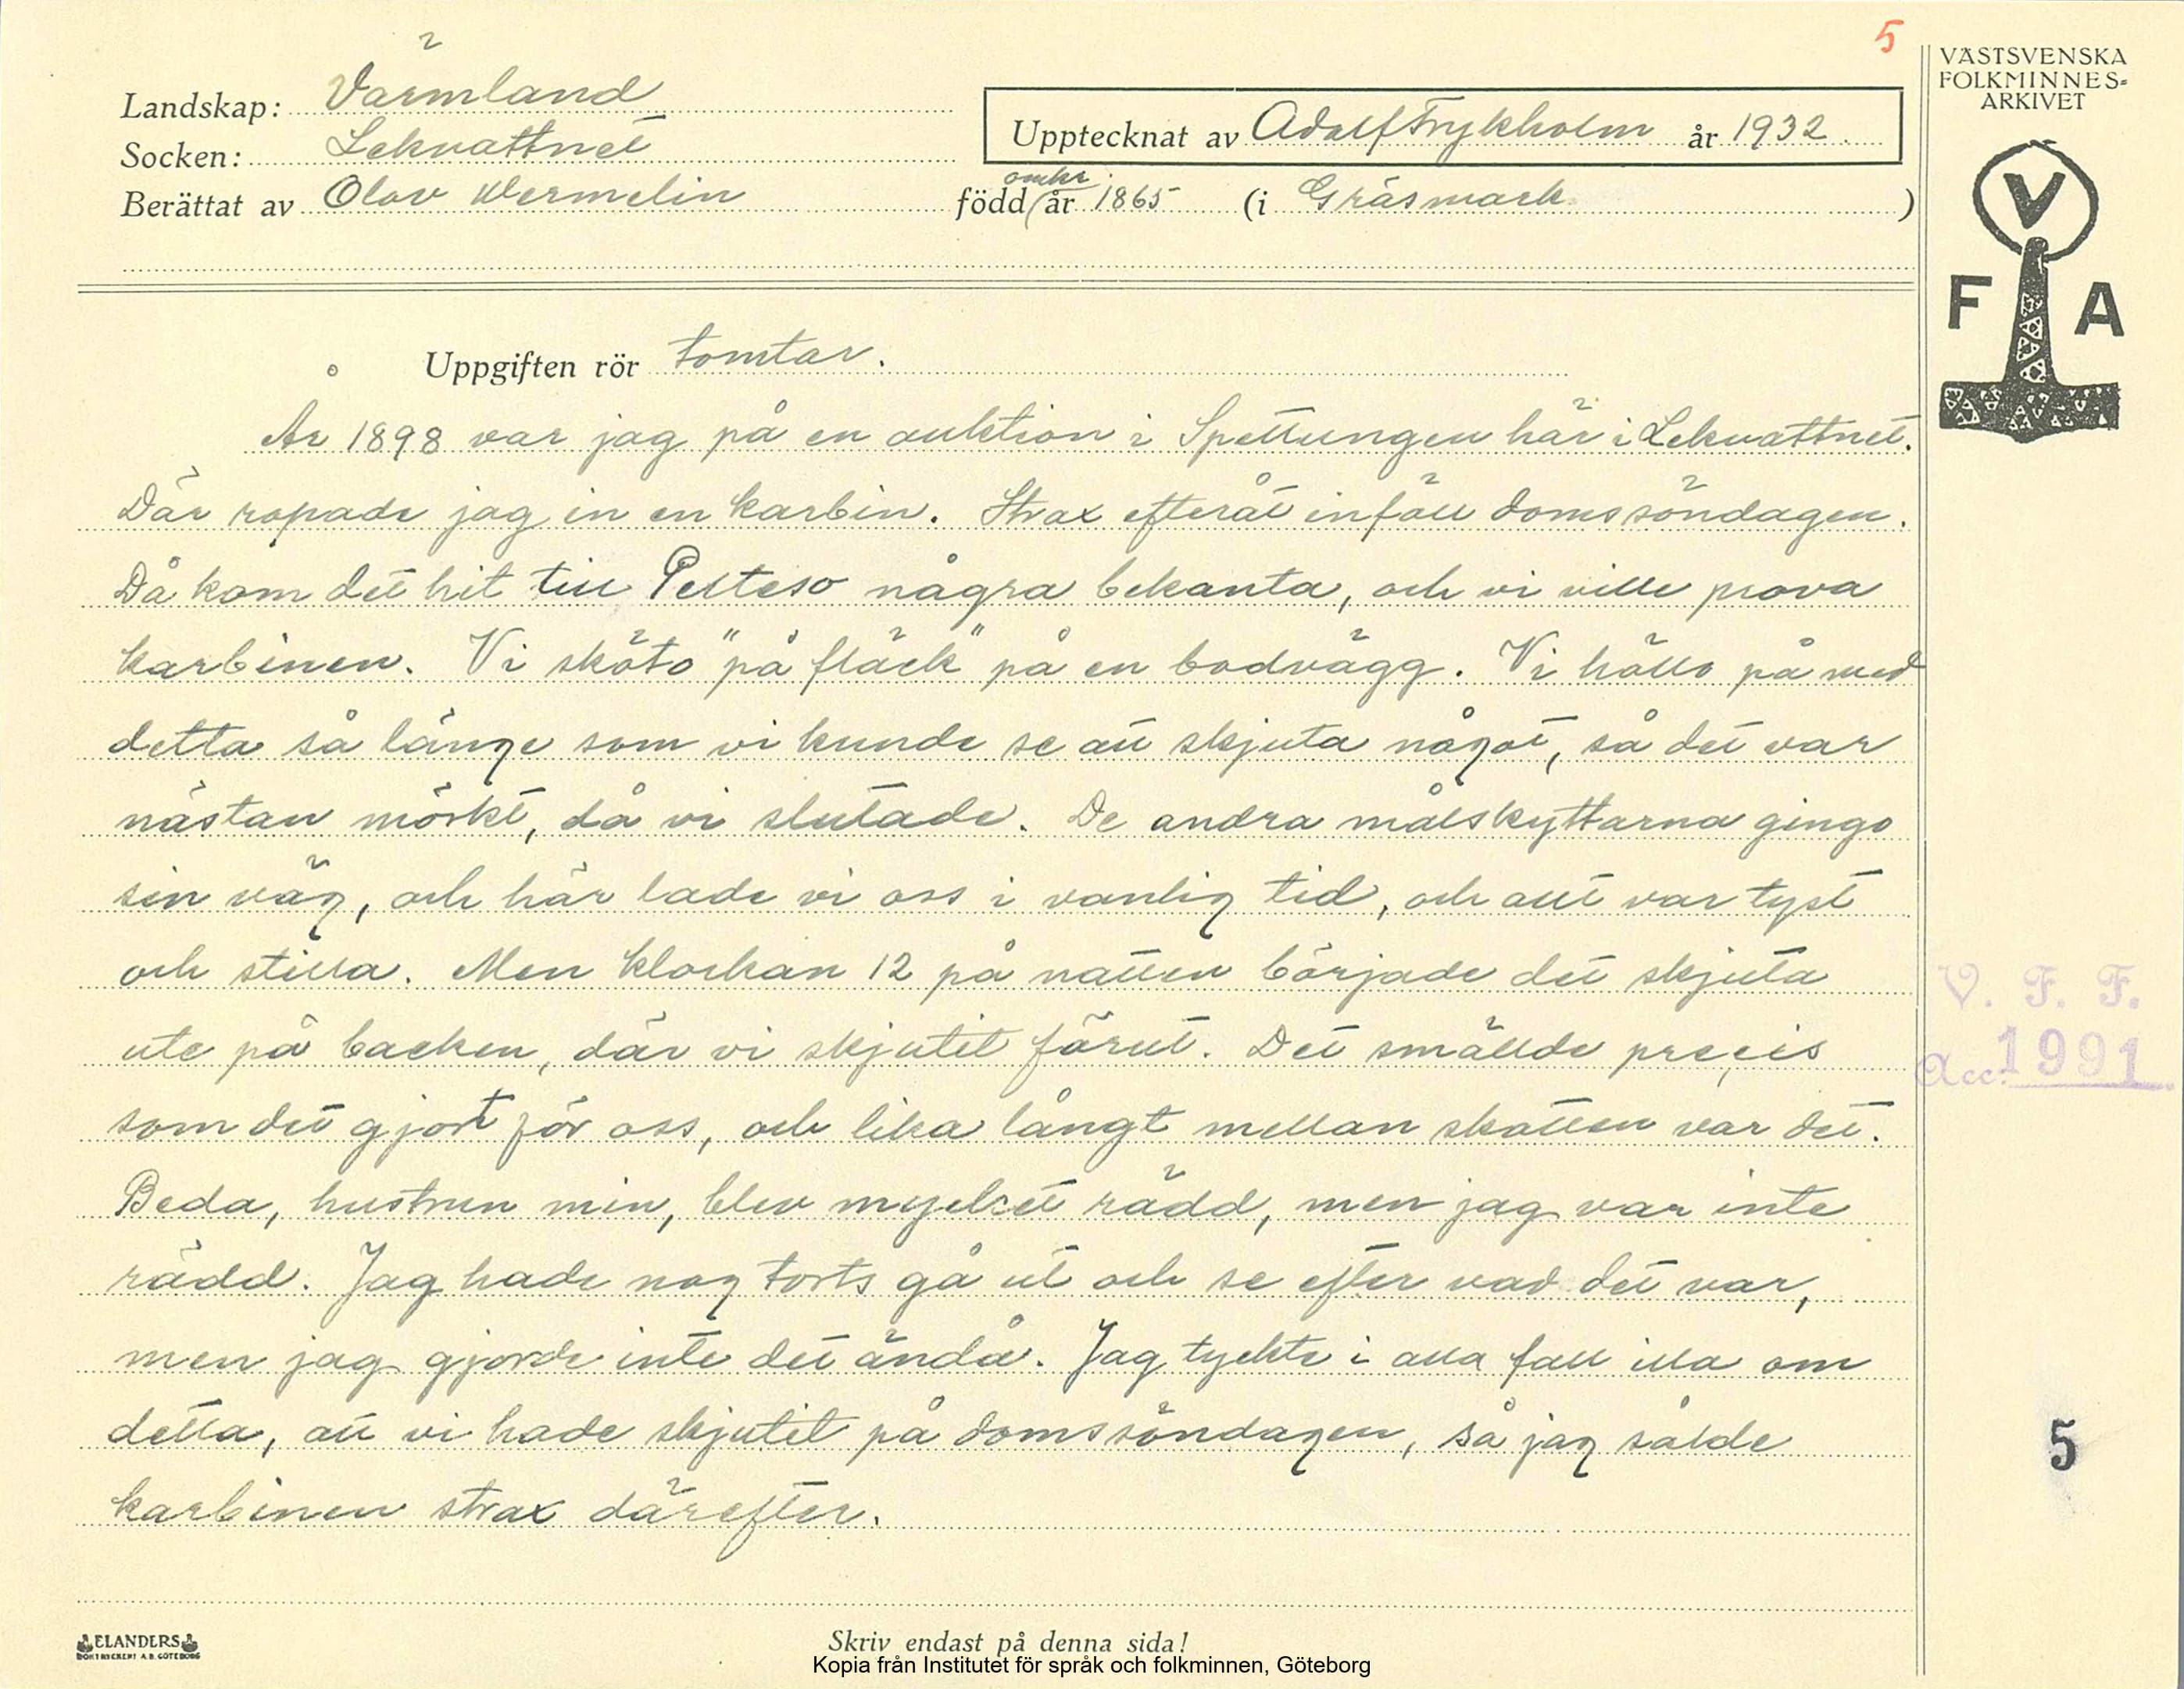 5
VÄSTSVENSKA
FOLKMINNES-
ARKIVET
Landskap: Värmland
Socken: Lekvattnet
Upptecknat av Adolf Frykholm år 1932
Berättat av Olov Wermelin född (omkr. år 1865 (i Gräsmark )
V
F A
Uppgiften rör tomtar.
År 1898 var jag på en auktion i Spettungen här i Lekvattnet.
Där ropade jag in en karbin. Strax efteråt inföll domssöndagen.
Då kom det hit till Pelteso några bekanta, och vi ville prova
karbinen. Vi sköto "på fläck" på en bodvägg. Vi höllo på med
detta så länge som vi kunde se att skjuta något, så det var
nästan mörkt, då vi slutade. De andra målskyttarna gingo
sin väg, och här lade vi oss i vanlig tid, och allt var tyst
och stilla. Men klockan 12 på natten började det skjuta
ute på backen, där vi skjutit förut. Det smällde precis
som det gjort för oss, och lika långt mellan skotten var det.
Beda, hustrun min, blev mycket rädd, men jag var inte
rädd. Jag hade nog torts gå ut och se efter vad det var,
men jag gjorde inte det ändå. Jag tyckte i alla fall illa om
detta, att vi hade skjutit på domssöndagen, så jag sålde
karbinen strax därefter.
V. F. F.
Acc. 1991
5
ELANDERS
BOKTRYCKERI A.B. GÖTEBORG
Skriv endast på denna sida!
Kopia från Institutet för språk och folkminnen, Göteborg